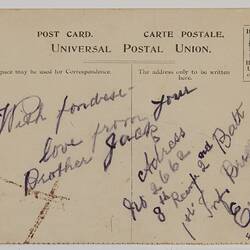 POST CARD. CARTE POSTALE.
UNIVERSAL POSTAL UNION.
space may be used for Correspondence. The address only to be written here.
With fondest
love from Your
Brother Jack
Adress
No 2662
8th Reinf 2nd Batt
1st Inf